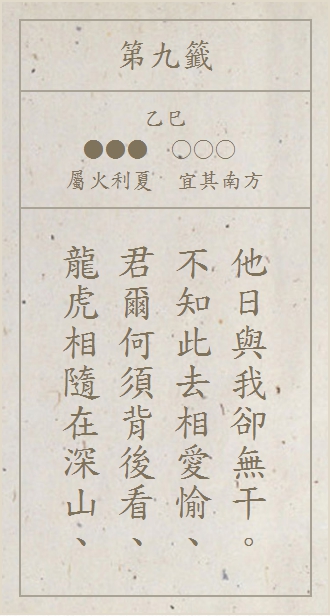 第九籤
乙巳
●●● ○○○
屬火利夏 宜其南方
龍虎相隨在深山、
君爾何須背後看、
不知此去相愛愉、
他日與我卻無干。